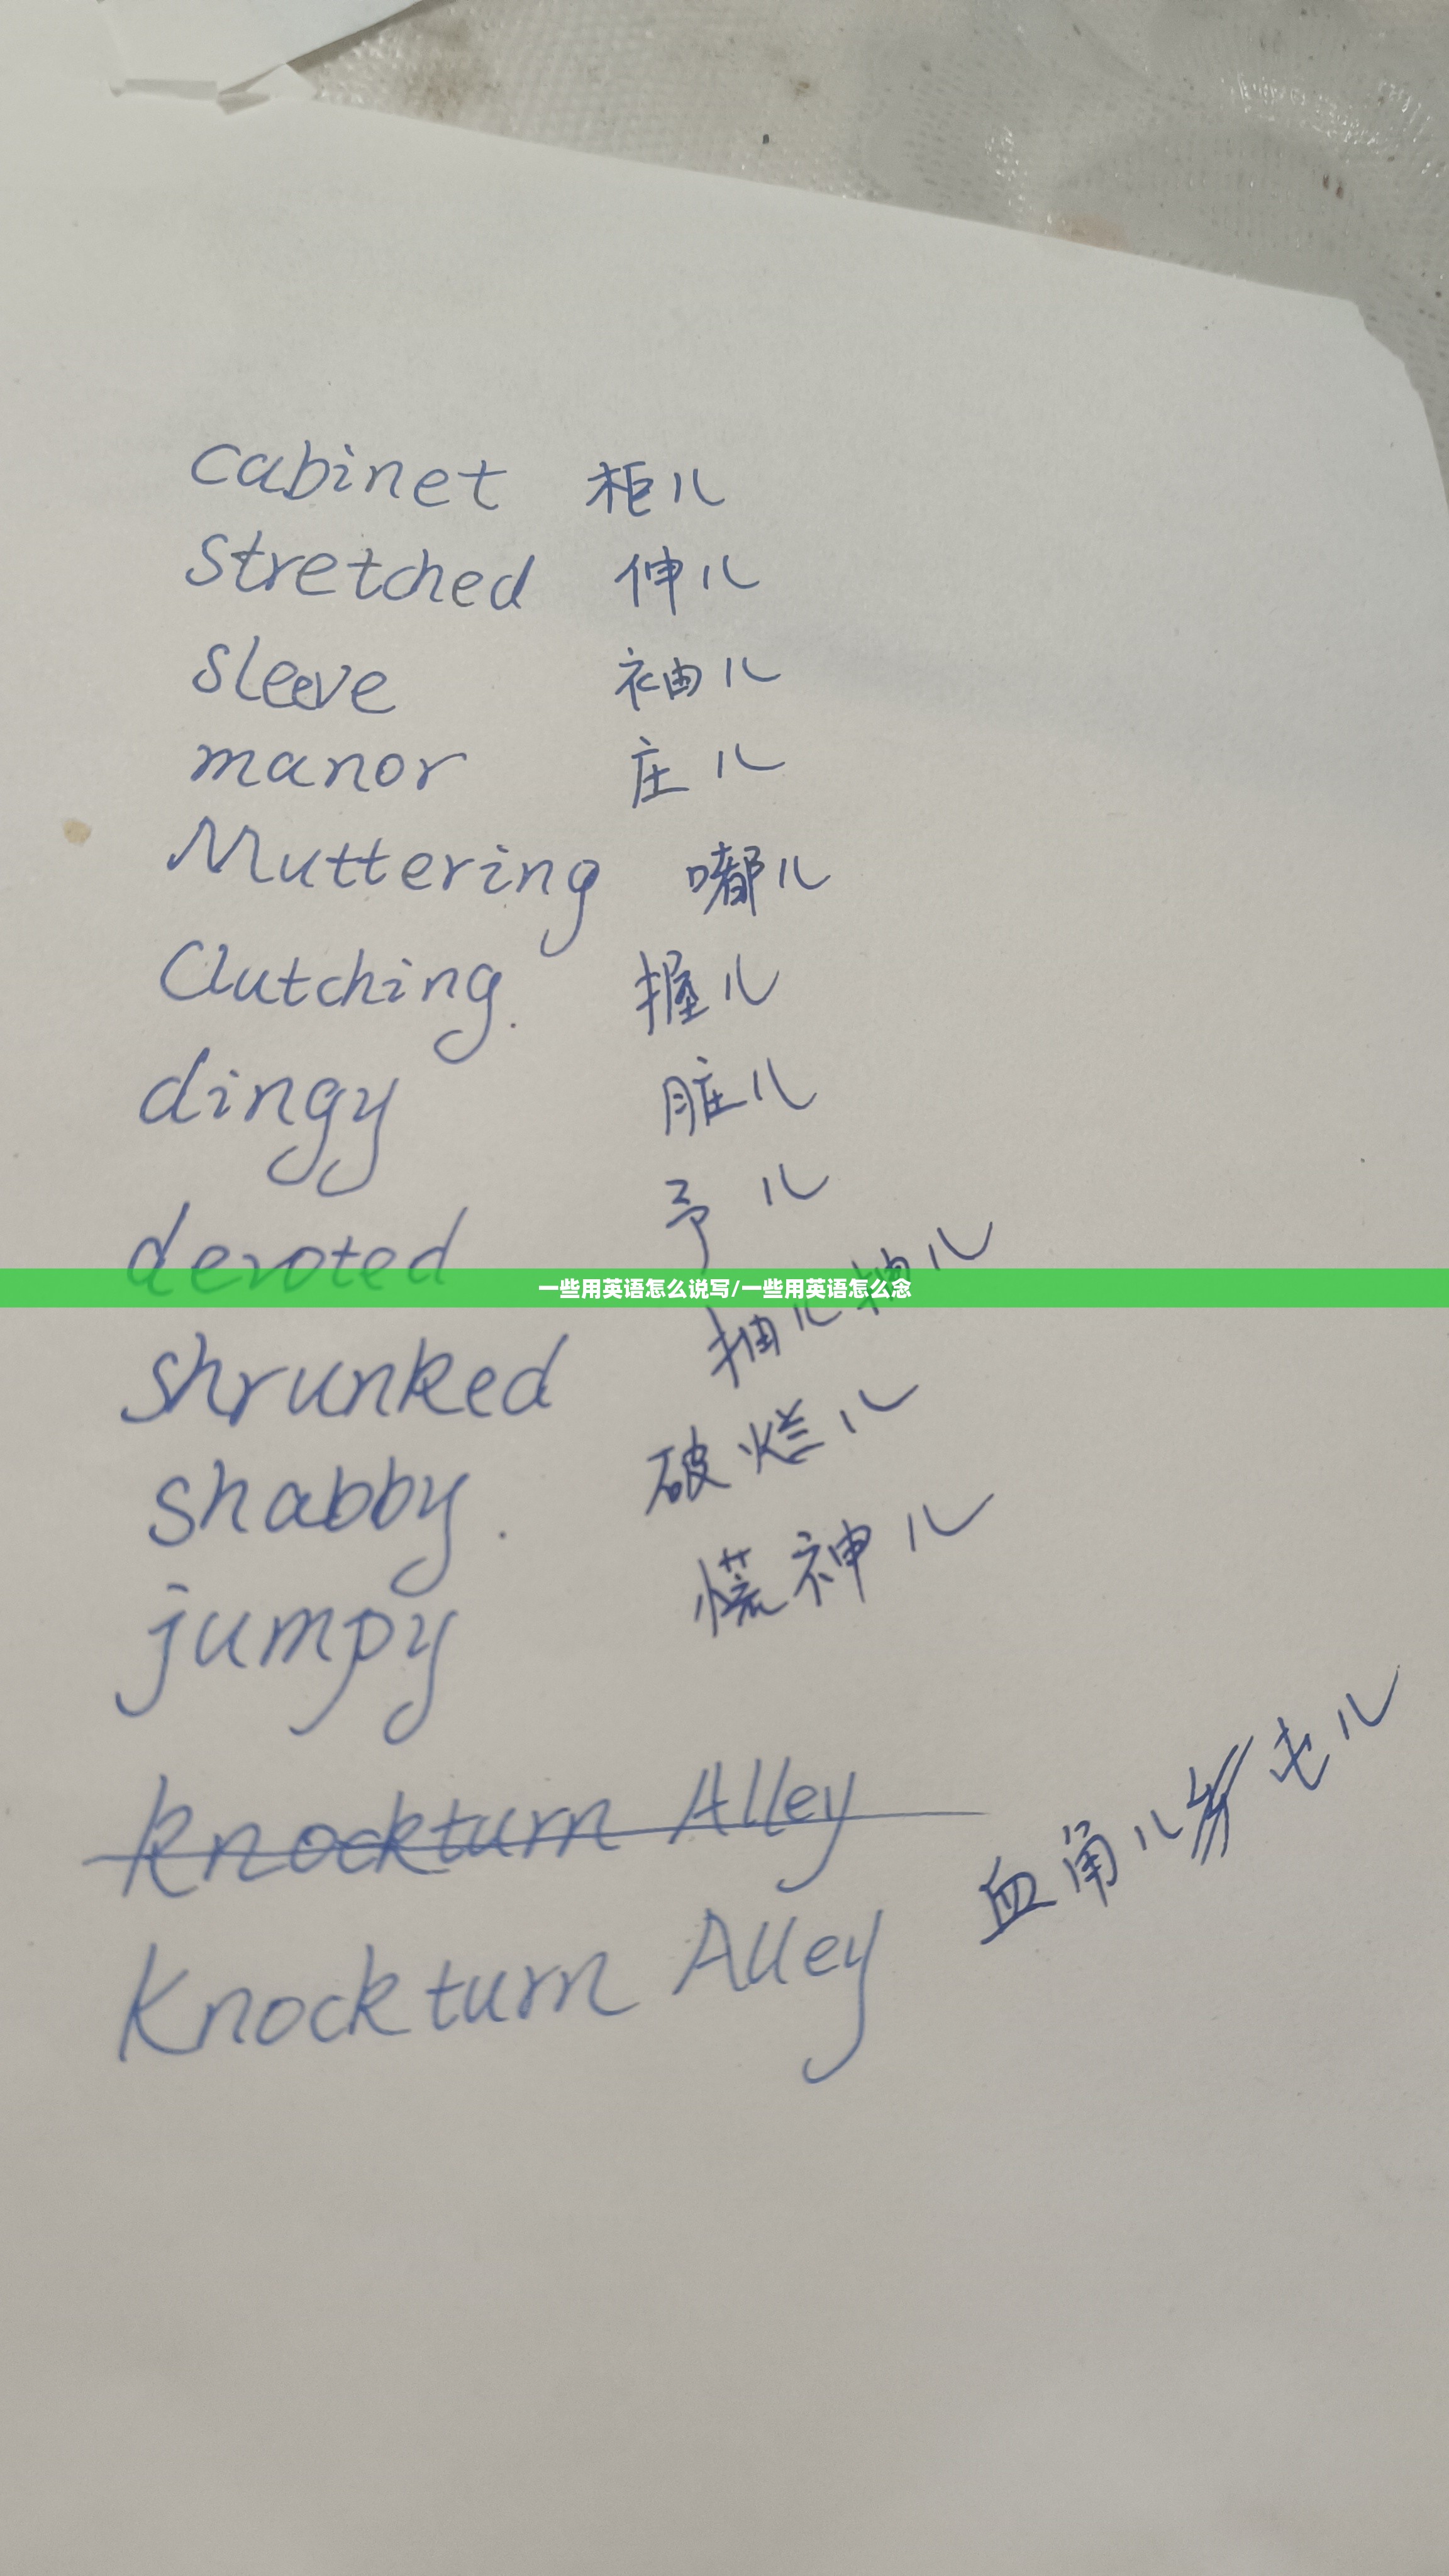 cabinet 柜儿
stretched 伸儿
sleeve 袖儿
manor 庄儿
Muttering 嘟儿
Clutching. 握儿
dingy 脏儿
devoted 予儿
一些用英语怎么说写/一些用英语怎么念
shrunked 抽儿抽儿
shabby. 破烂儿
jumpy 慌神儿
Knockturn Alley
Knockturn Alley 血角儿屯儿